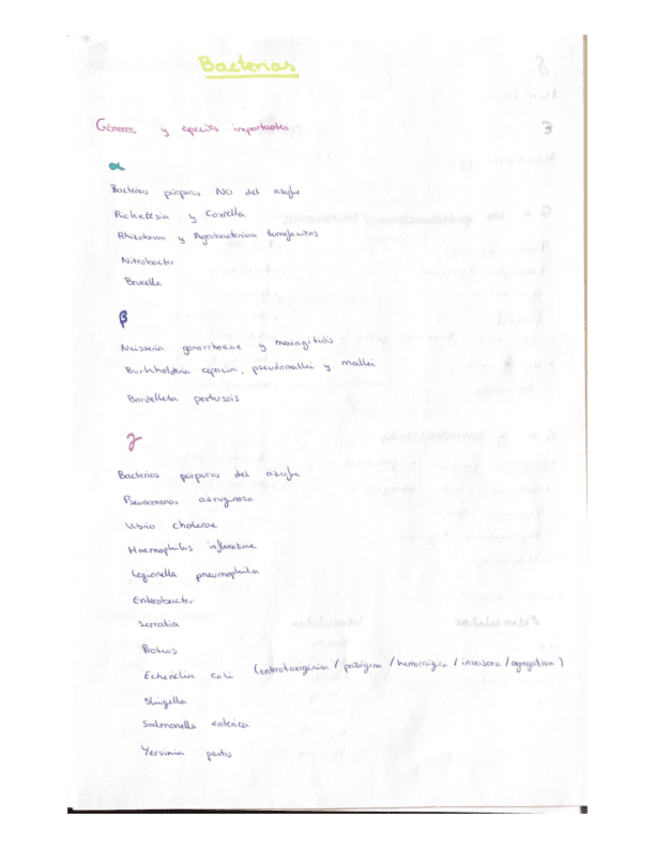 Bacterias
Géneros y especies importantes
α
Bacterias púrpuras NO del azufre
Ricketesia y Coxiella
Rhizobium y Agrobacterium tumefaciens
Nitrobacter
Brucella
β
Neisseria gonorrhoeae y meningitidis
Burkholderia cepacia, pseudomallei y mallei
Bordetella pertussis
γ
Bacterias púrpuras del azufre
Pseudomonas aeruginosa
Vibrio cholerae
Haemophilus influenzae
Legionella pneumophila
Enterobacter
Serratia
Proteus
Echerichia coli (enterotoxigénica / patógena / hemorrágica / invasora / agregativa)
Shigella
Salmonella enterica
Yersinia pestis